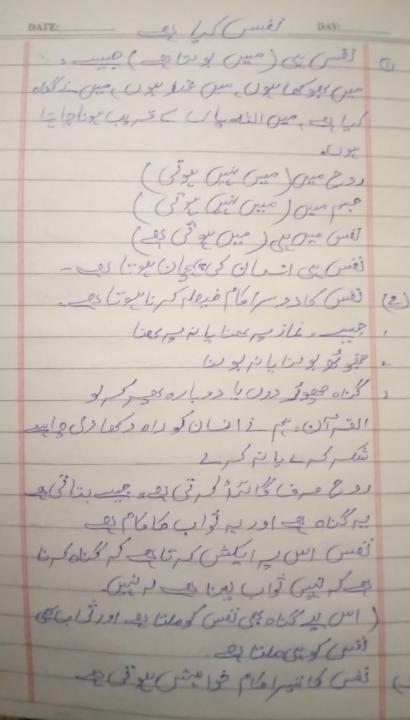 DATE: DAY:
نفس کیا ہے
(۱) نفس ہی (میں ہوتا ہے) جیسے۔
میں بھوکھا ہوں، میں ہوں، میں نے گناہ
کیا ہے، میں اللہ پاک کے قریب ہونا چاہتا
ہوں۔
روح میں (میں نہیں ہوتی)
جسم میں (میں نہیں ہوتی)
نفس میں ہی (میں ہوتی ہے)
نفس ہی انسان کی پہچان ہوتا ہے۔
(۲) نفس کا دوسرا کام فیصلہ کرنا ہوتا ہے۔
جیسے۔ نماز پڑھنا یا نہ پڑھنا
جھوٹ بولنا یا نہ بولنا
گناہ چھوڑ دوں یا دوبارہ پھر کر لو
القرآن۔ ہم نے انسان کو راہ دکھا دی چاہے
شکر کرے یا نہ کرے
روح صرف گائیڈ کرتی ہے۔ جیسے بتاتی ہے
یہ گناہ ہے اور یہ ثواب کا کام ہے
نفس اس پہ ایکشن کرتا ہے کہ گناہ کرنا
ہے کہ نہیں ثواب لینا ہے کہ نہیں۔
(اس لیے گناہ بھی نفس کو ملتا ہے اور ثواب بھی
نفس کو ہی ملتا ہے
نفس کا تیسرا کام خواہش ہوتی ہے